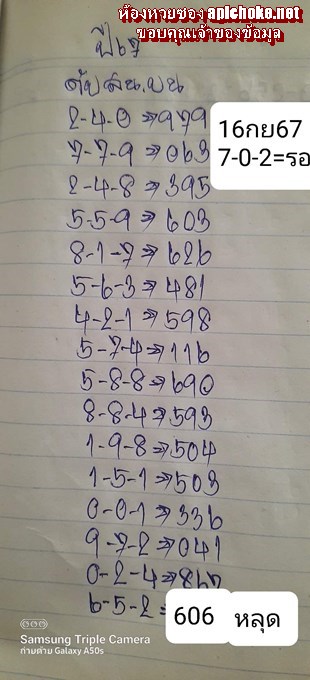 ห้องหวยซอง apichoke.net
ขอบคุณเจ้าของข้อมูล
ปี67
ดับสิบ.บน
2-4-0⇒979
16กย67
7-0-2=รอ
7-7-9⇒063
2-4-8⇒395
5-5-9⇒603
8-1-7⇒626
5-6-3⇒481
4-2-1⇒598
5-7-4⇒116
5-8-8⇒690
8-8-4⇒593
1-9-8⇒504
1-5-1⇒503
0-0-1⇒336
9-7-2⇒041
0-2-4⇒867
6-5-2=
606 หลุด
Samsung Triple Camera
ถ่ายด้วย Galaxy A50s